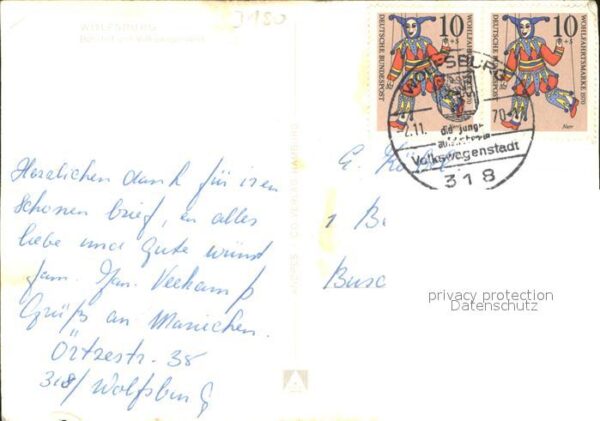 WOLFSBURG
3180
10
+5
DEUTSCHE BUNDESPOST
WOHLFAHRTSMARKE 1970
Narr
10
+5
DEUTSCHE BUNDESPOST
WOHLFAHRTSMARKE 1970
Narr
WOLFSBURG
-2.11. 70-
die junge
Volkswagenstadt
318
Herzlichen dank für iren
schonen brief, en alles
liebe und Gute wünst
fam.
Grüß an Manichen.
Örtzestr. 38
318/ Wolfsburg
G.
1 B
Busc
privacy protection
Datenschutz